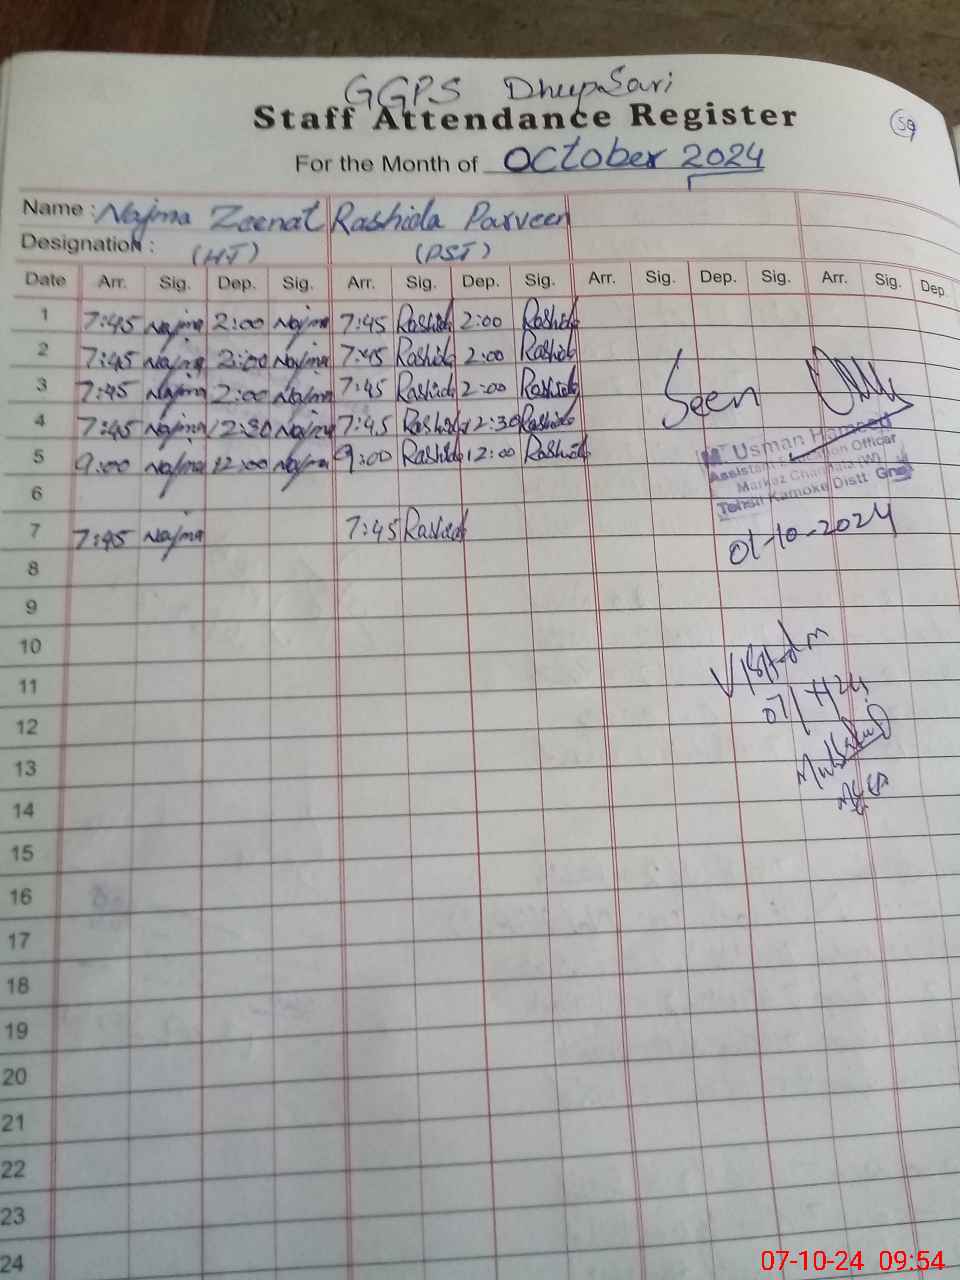 GGPS DhupSari
Staff Attendance Register
59
For the Month of October 2024
Name : Najma Zeenat Rashida Parveen
Designation : (HT) (PST)
Date Arr. Sig. Dep. Sig. Arr. Sig. Dep. Sig. Arr. Sig. Dep. Sig. Arr. Sig. Dep.
1 7:45 Najma 2:00 Najma 7:45 Rashida 2:00 Rashida
2 7:45 Najma 2:00 Najma 7:45 Rashida 2:00 Rashida
3 7:45 Najma 2:00 Najma 7:45 Rashida 2:00 Rashida
4 7:45 Najma 12:30 Najma 7:45 Rashida 12:30 Rashida
5 9:00 Najma 12:00 Najma 9:00 Rashida 12:00 Rashida
6
7 7:45 Najma 7:45 Rashida
8
9
10
11
12
13
14
15
16
17
18
19
20
21
22
23
24
Seen
Usman Hameed
Assistant Education Officer
Markaz (W)
Tehsil Kamoke Distt Grw
01-10-2024
07-10-24 09:54